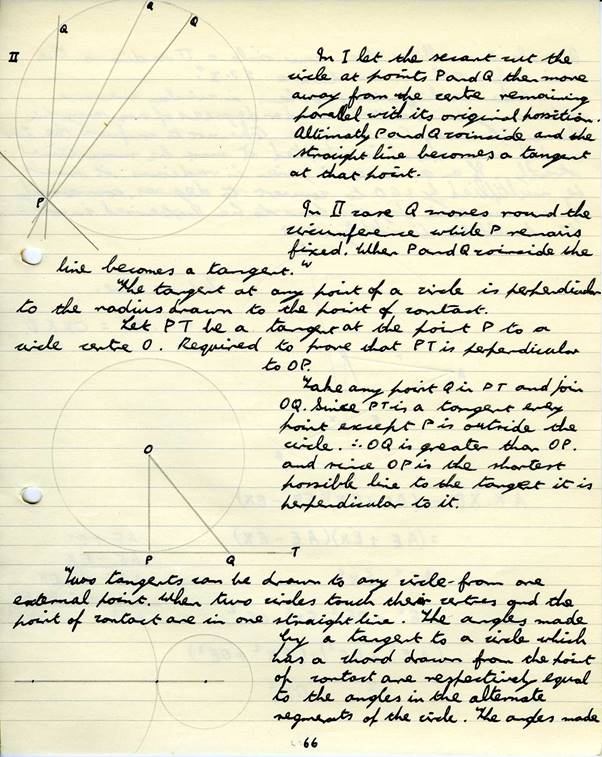 Q Q Q
II
In I let the secant cut the
circle at points P and Q then move
away from the centre remaining
parallel with its original possition.
Altimatly P and Q coinside and the
straight line becomes a tangent
at that point.
P
In II case Q moves round the
circumference while P remains
fixed. When P and Q coinside the
line becomes a tangent."
The tangent at any point of a circle is perpendicular
to the radius drawn to the point of contact.
Let PT be a tangent at the point P to a
circle centre O. Required to prove that PT is perpendicular
to OP.
Take any point Q in PT and join
OQ. Since PT is a tangent every
point except P is outside the
circle. ∴ OQ is greater than OP.
and since OP is the shortest
possible line to the tangent it is
perpendicular to it.
O
P Q T
Two tangents can be drawn to any circle from one
external point. When two circles touch their centres and the
point of contact are in one straight line. The angles made
by a tangent to a circle which
has a chord drawn from the point
of contact are respectively equal
to the angles in the alternate
segments of the circle. The angles made
66